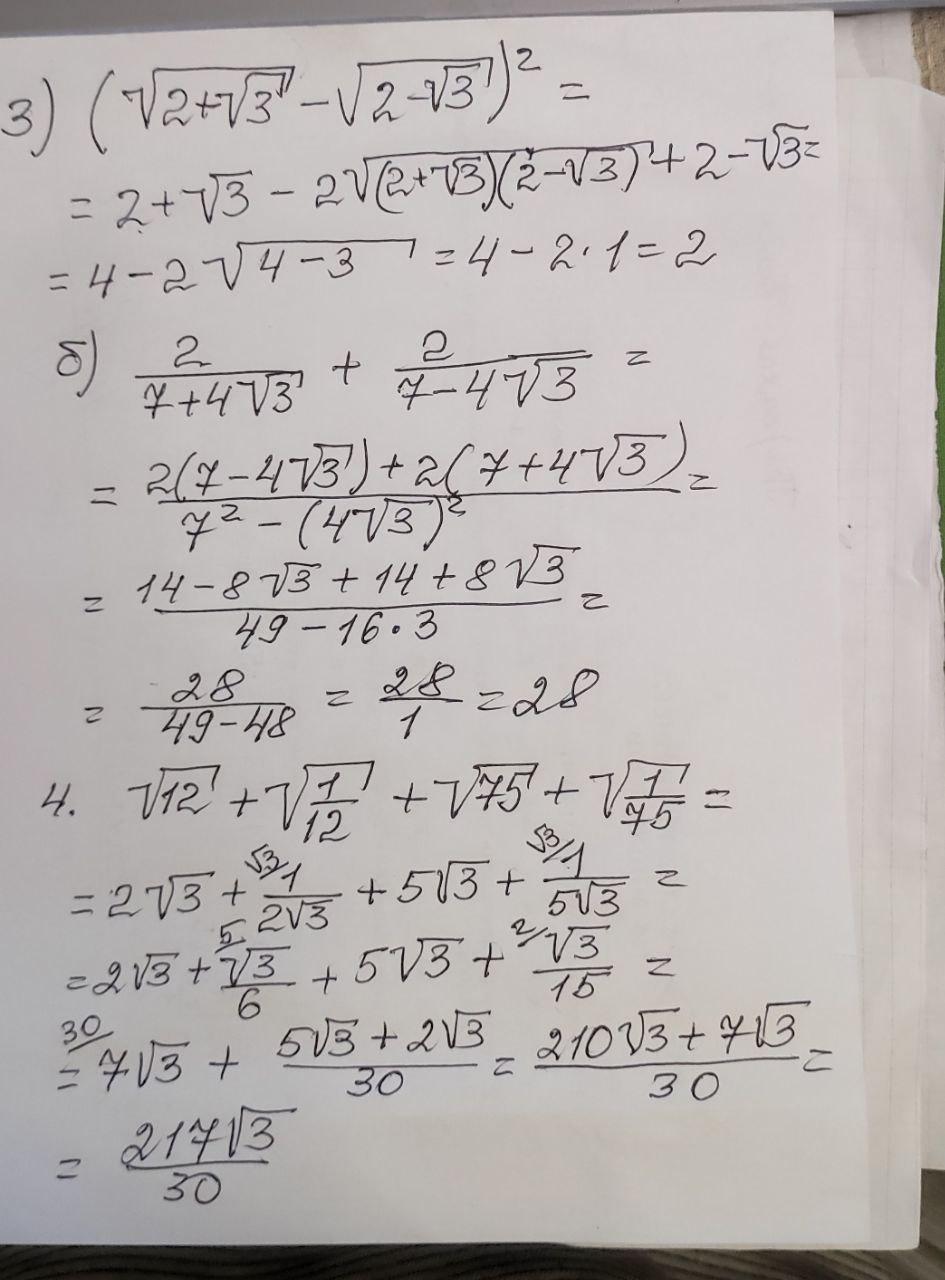 3) (√(2+√3) - √(2-√3))² =
= 2+√3 - 2√((2+√3)(2-√3)) + 2-√3 =
= 4-2√(4-3) = 4-2·1=2
б) 2/(7+4√3) + 2/(7-4√3) =
= (2(7-4√3)+2(7+4√3))/(7²-(4√3)²) =
= (14-8√3+14+8√3)/(49-16·3) =
= 28/(49-48) = 28/1 = 28
4. √12 + √(1/12) + √75 + √(1/75) =
= 2√3 + √3/ 1/(2√3) + 5√3 + √3/ 1/(5√3) =
= 2√3 + 5/ √3/6 + 5√3 + 2/ √3/15 =
= 30/ 7√3 + (5√3+2√3)/30 = (210√3+7√3)/30 =
= 217√3/30